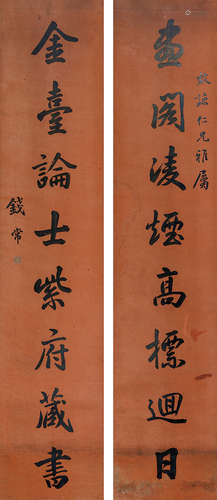 畫閣凌煙高標迴日
敬謹仁兄雅屬
金臺論士紫府藏書
錢常